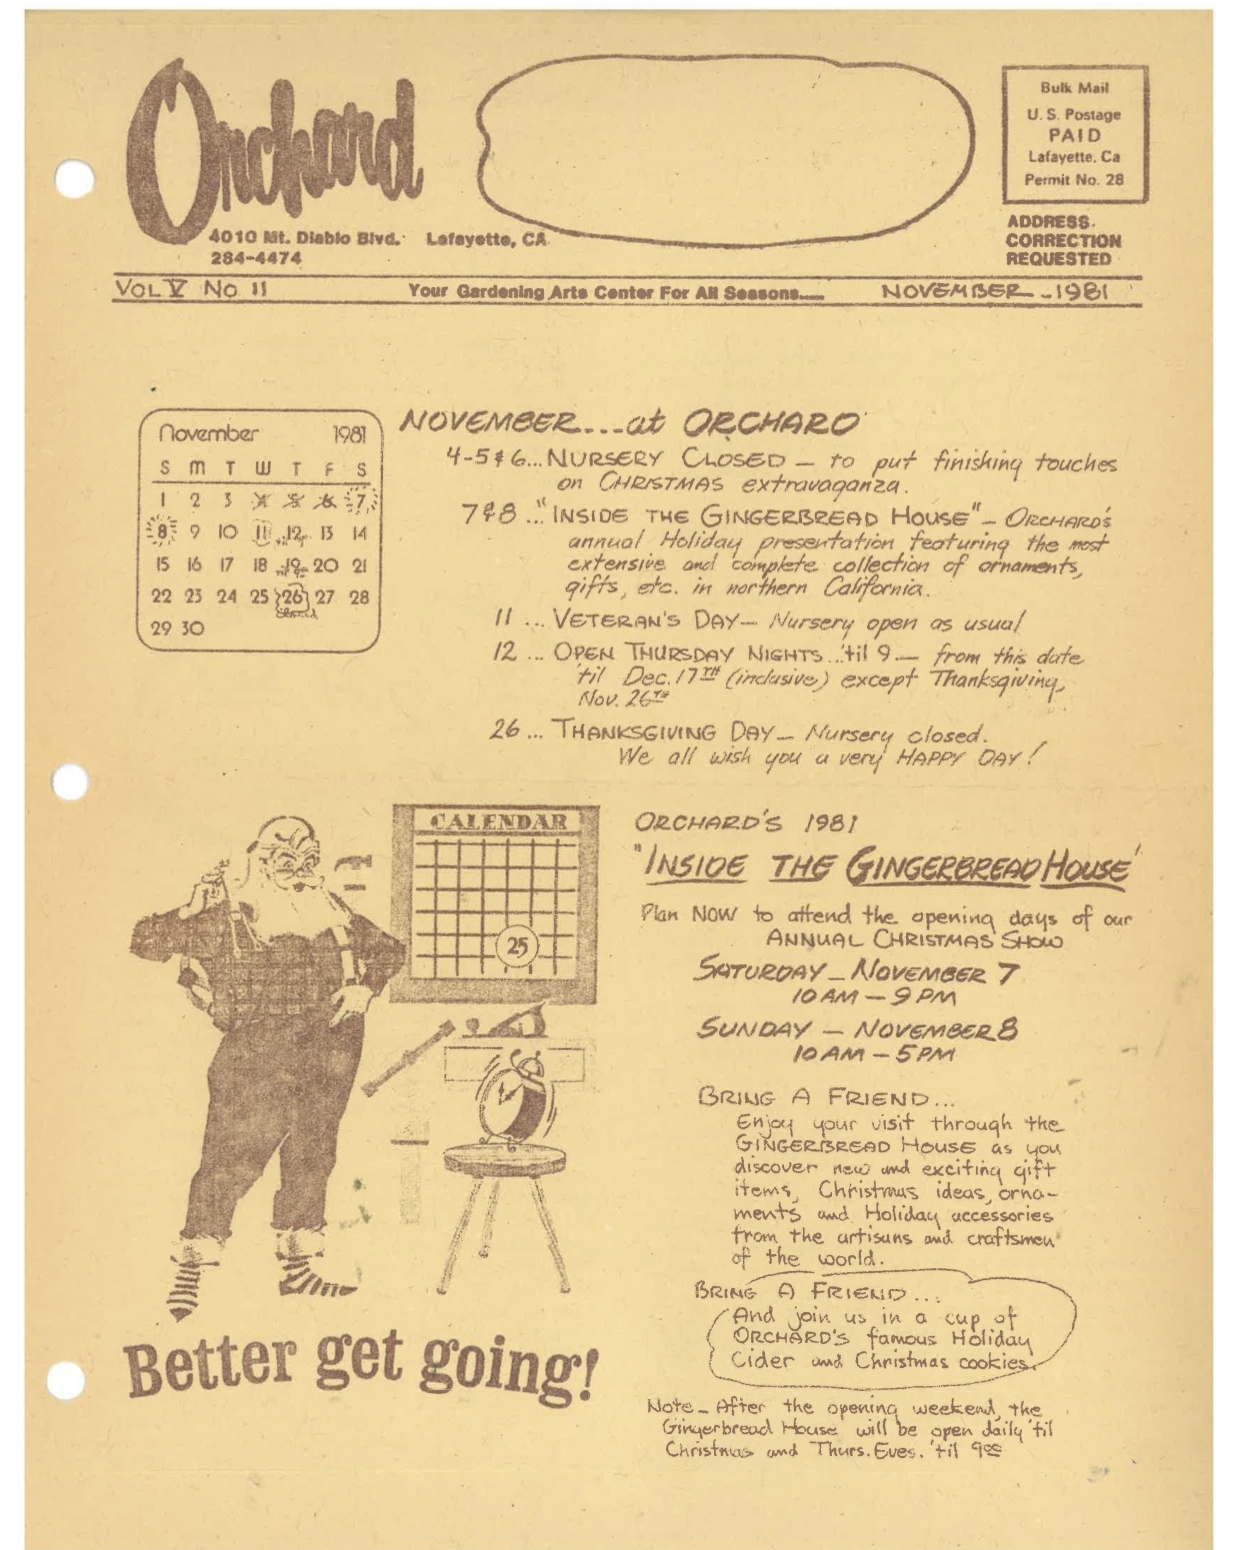 Orchard
4010 Mt. Diablo Blvd. Lafayette, CA
284-4474
Bulk Mail
U. S. Postage
PAID
Lafayette, Ca
Permit No. 28
ADDRESS
CORRECTION
REQUESTED
VOL V NO 11 Your Gardening Arts Center For All Seasons.... NOVEMBER - 1981
November 1981
S M T W T F S
1 2 3 4 5 6 7
8 9 10 11 12 13 14
15 16 17 18 19 20 21
22 23 24 25 26 27 28
29 30
NOVEMBER...at ORCHARD
4-5 & 6...NURSERY CLOSED — to put finishing touches
on CHRISTMAS extravaganza.
7 & 8 ... "INSIDE THE GINGERBREAD HOUSE" — ORCHARD'S
annual Holiday presentation featuring the most
extensive and complete collection of ornaments,
gifts, etc. in northern California.
11 ... VETERAN'S DAY — Nursery open as usual
12 ... OPEN THURSDAY NIGHTS...'til 9 — from this date
'til Dec. 17TH (inclusive) except Thanksgiving,
Nov. 26TH
26 ... THANKSGIVING DAY — Nursery closed.
We all wish you a very HAPPY DAY!
CALENDAR
25
Better get going!
ORCHARD'S 1981
"INSIDE THE GINGERBREAD HOUSE"
Plan NOW to attend the opening days of our
ANNUAL CHRISTMAS SHOW
SATURDAY — NOVEMBER 7
10 AM — 9 PM
SUNDAY — NOVEMBER 8
10 AM — 5 PM
BRING A FRIEND...
Enjoy your visit through the
GINGERBREAD HOUSE as you
discover new and exciting gift
items, Christmas ideas, orna-
ments and Holiday accessories
from the artisans and craftsmen
of the world.
BRING A FRIEND...
And join us in a cup of
ORCHARD'S famous Holiday
Cider and Christmas cookies.
Note — After the opening weekend, the
Gingerbread House will be open daily 'til
Christmas and Thurs. Eves. 'til 9:00